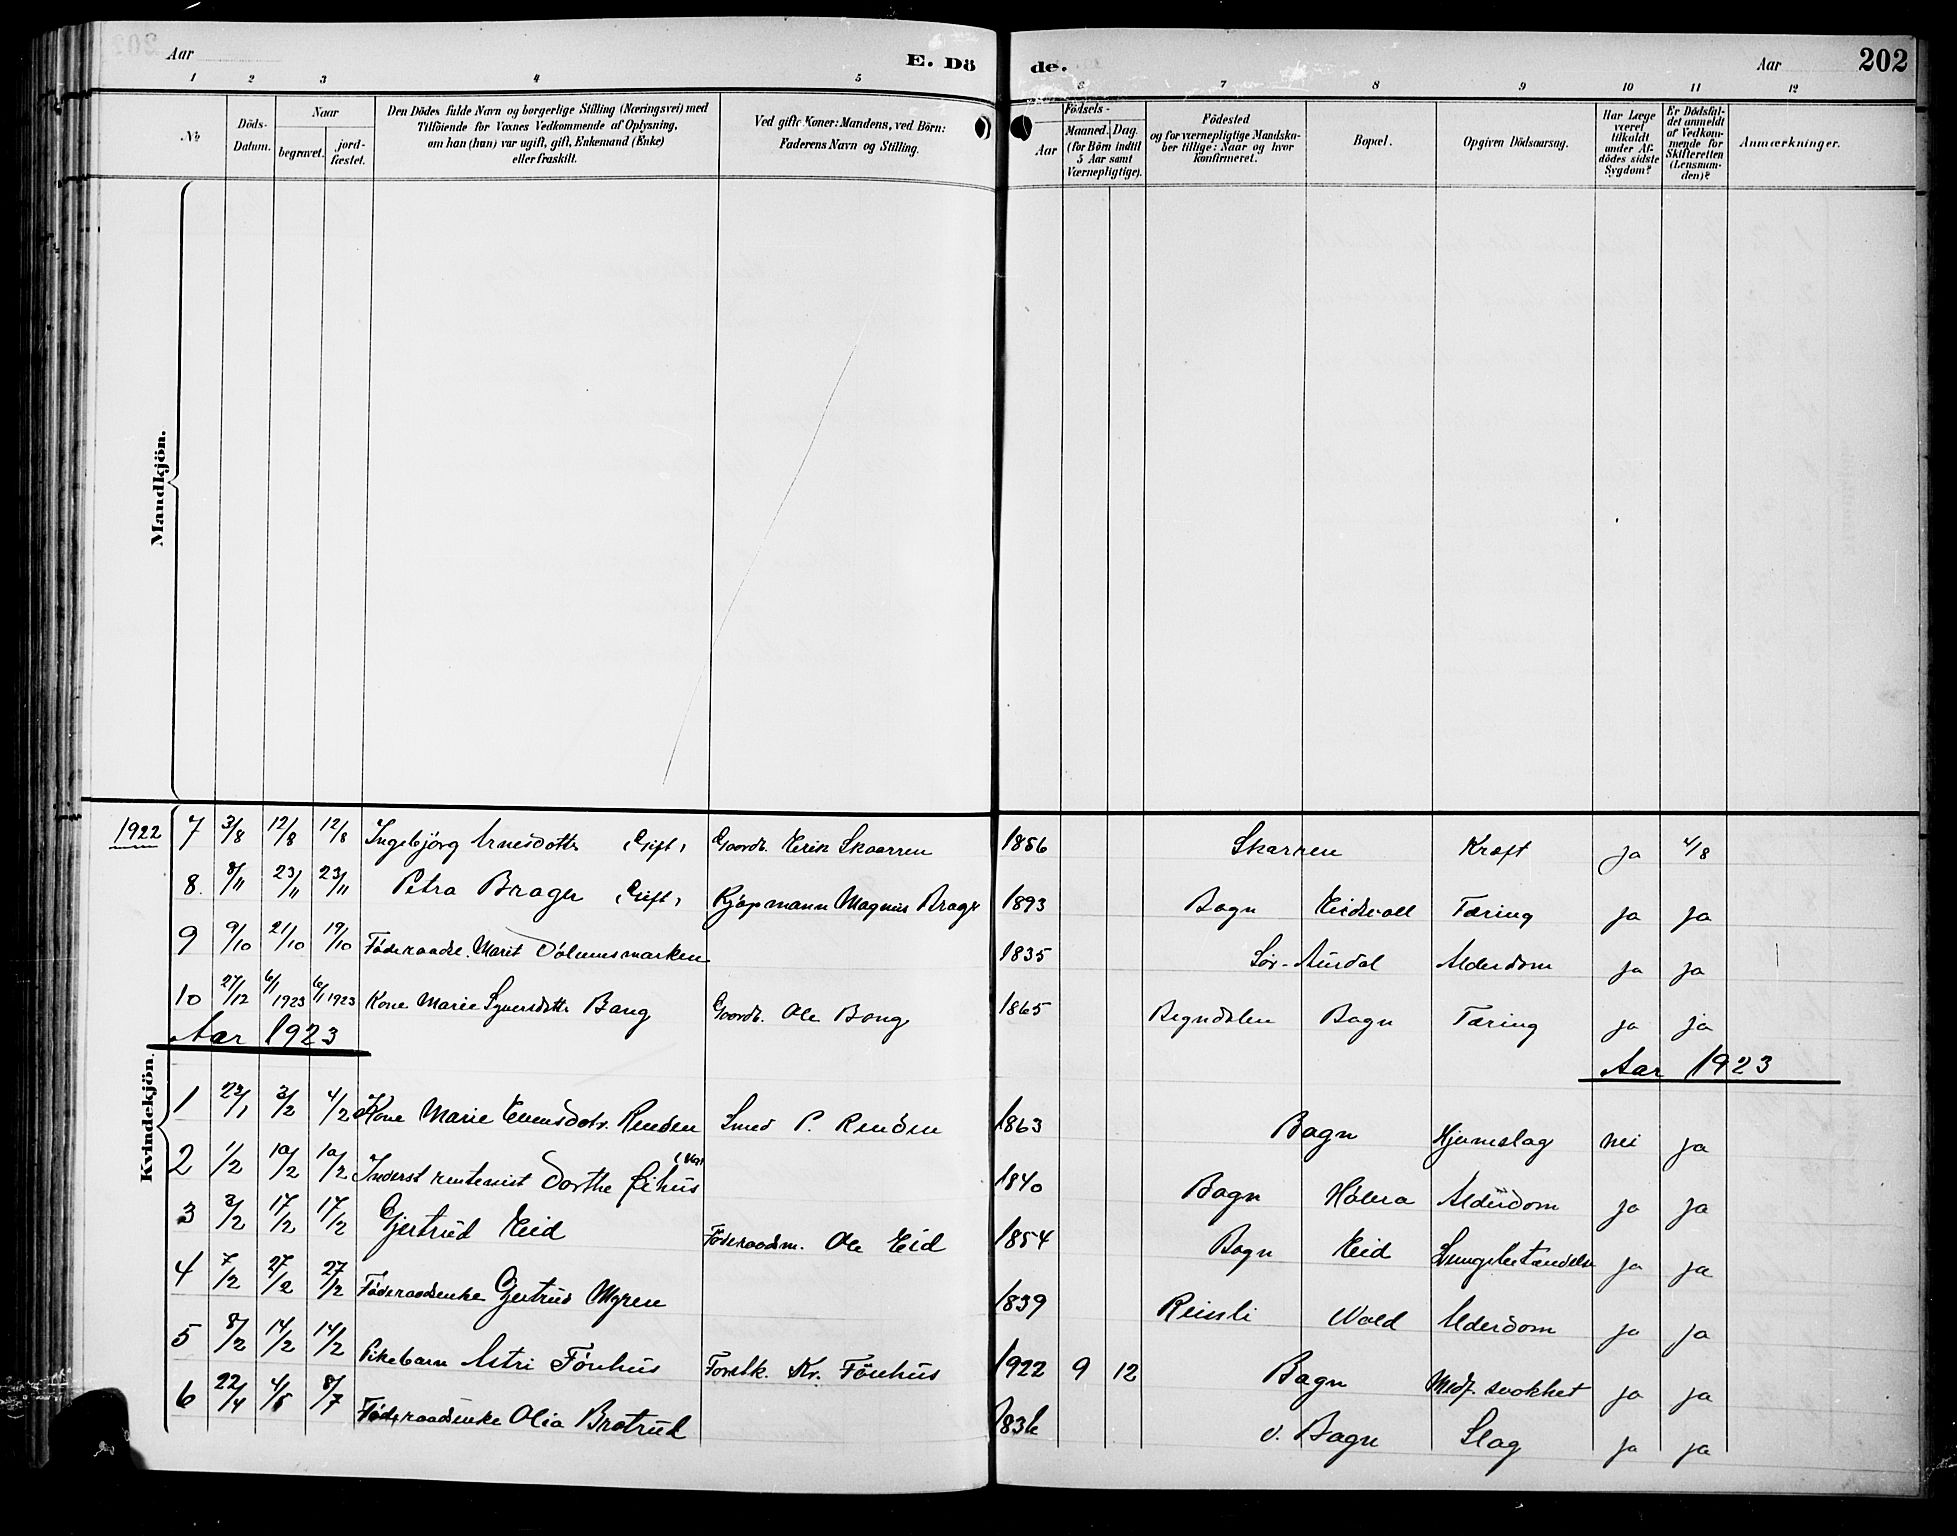 Aar
E. Dö
de.
Aar
202
1 2 3 4 5 6 7 8 9 10 11 12
No
Döds-
Datum.
Naar
begravet.
jord-
fæstet.
Den Dödes fulde Navn og borgerlige Stilling (Næringsvei) med
Tilföiende for Voxnes Vedkommende af Oplysning,
om han (hun) var ugift, gift, Enkemand (Enke)
eller fraskilt.
Ved gifte Koner: Mandens, ved Börn:
Faderens Navn og Stilling.
Födsels-
Aar
Maaned.
Dag.
(for Börn indtil
5 Aar samt
Værnepligtige).
Födested
og for værnepligtige Mandska-
ber tillige: Naar og hvor
konfirmeret.
Bopæl.
Opgiven Dödsaarsag.
Har Læge
været
tilkaldt
under Af-
dödes sidste
Sygdom?
Er Dödsfal-
det anmeldt
af Vedkom-
mende for
Skifteretten
(Lensman-
den)?
Anmærkninger.
Mandkjön.
1922 7 3/8 12/8 12/8 Ingebjörg Arnesdottr (Gift) Gaardb. Erik Skaarren 1856 Skarren Kræft ja 4/8
8. 8/11 23/11 23/11 Petra Brager (Gift) Kjøpmann Magnus Brager 1893 Bagn Eidsvoll Tæring ja ja
9 9/10 21/10 19/10 Føderaadse. Marit Dölemsmarken 1835 Sør-Aurdal Alderdom ja ja
10 27/12 6/1 1923 6/1 1923 Kone Marie Syversdottr Bang Gaardb. Ole Bang 1865 Begndalen Bagn Tæring ja ja
Aar 1923
Aar 1923
Kvindekjön.
1 23/1 3/2 4/2 Kone Marie Evensdotr. Renden Smed P. Renden 1863 Bagn Hjerneslag nei ja
2 1/2 10/2 10/2 Inderst rentenist Dorthe Øihus 1840 Bagn Hølera Alderdom ja ja
3 3/2 17/2 17/2 Gjertrud Eid Föderaadsm. Ole Eid 1854 Bagn Eid Lungebetændelse ja ja
4 7/2 27/2 27/2 Föderaadsenke Gjertrud Myren 1839 Reinli Wold Alderdom ja ja
5 8/2 14/2 14/2 Pikebarn Astri Fönhus Forstk. Kr. Fönhus 1922 9 12 Bagn Medf. svakhet ja ja
6 22/4 4/5 8/7 Föderaadsenke Olia Brotrud 1836 v. Bagn Slag ja ja